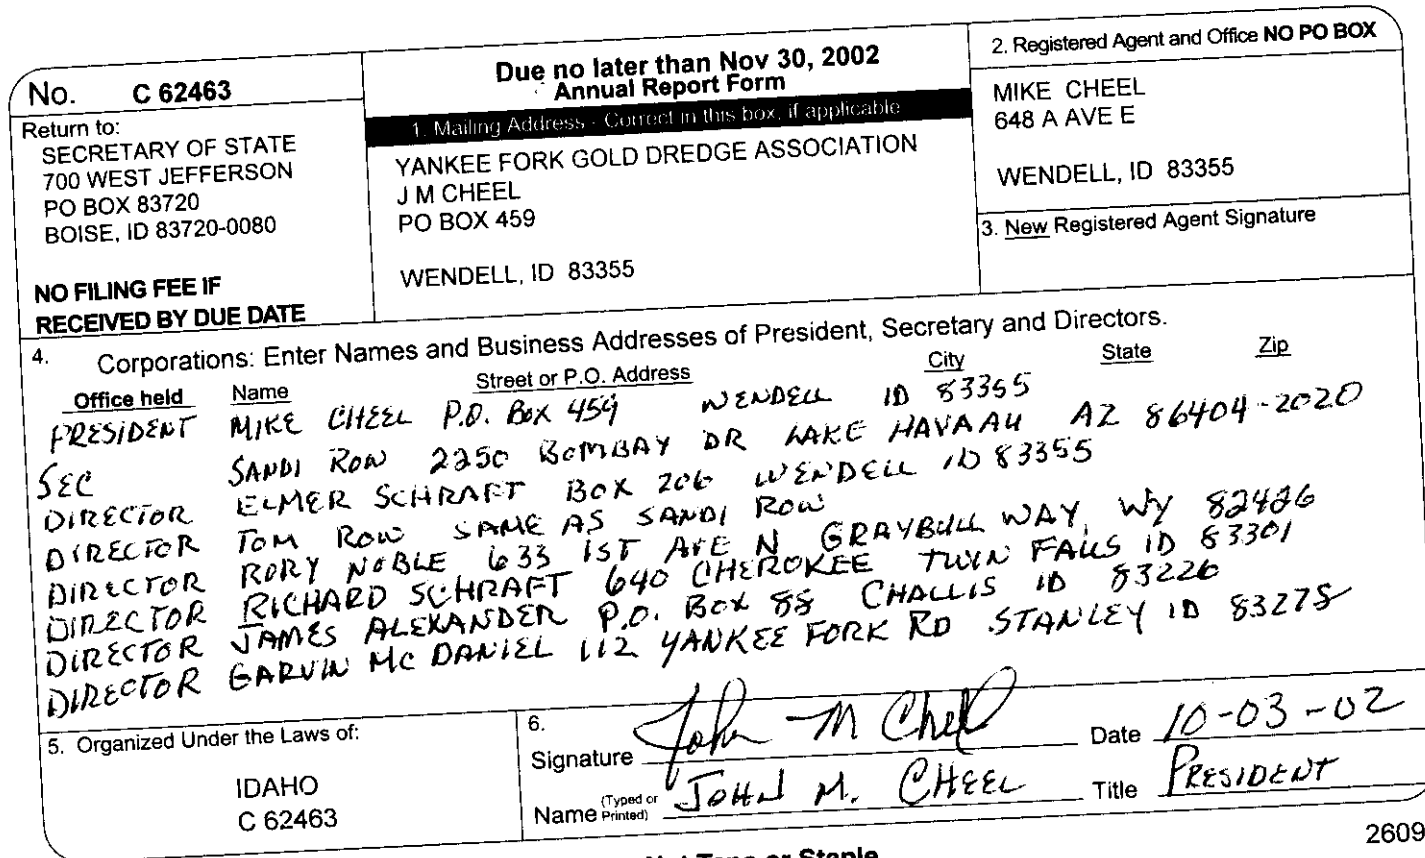 No. C 62463
Return to:
SECRETARY OF STATE
700 WEST JEFFERSON
PO BOX 83720
BOISE, ID 83720-0080
NO FILING FEE IF
RECEIVED BY DUE DATE
Due no later than Nov 30, 2002
Annual Report Form
1. Mailing Address - Correct in this box, if applicable
YANKEE FORK GOLD DREDGE ASSOCIATION
J M CHEEL
PO BOX 459
WENDELL, ID 83355
2. Registered Agent and Office NO PO BOX
MIKE CHEEL
648 A AVE E
WENDELL, ID 83355
3. New Registered Agent Signature
4. Corporations: Enter Names and Business Addresses of President, Secretary and Directors.
Office held Name Street or P.O. Address City State Zip
PRESIDENT MIKE CHEEL P.O. BOX 459 WENDELL ID 83355
SEC SANDI ROW 2250 BOMBAY DR LAKE HAVAAU AZ 86404-2020
DIRECTOR ELMER SCHRAFT BOX 206 WENDELL ID 83355
DIRECTOR TOM ROW SAME AS SANDI ROW
DIRECTOR RORY NOBLE 633 1ST AVE N GRAYBULL WAY, WY 82426
DIRECTOR RICHARD SCHRAFT 640 CHEROKEE TWIN FALLS ID 83301
DIRECTOR JAMES ALEXANDER P.O. BOX 88 CHALLIS ID 83226
DIRECTOR GARVIN MCDANIEL 112 YANKEE FORK RD STANLEY ID 83278
5. Organized Under the Laws of:
IDAHO
C 62463
6.
Signature John M Cheel Date 10-03-02
Name (Typed or Printed) JOHN M. CHEEL Title PRESIDENT
2609
Tape or Staple